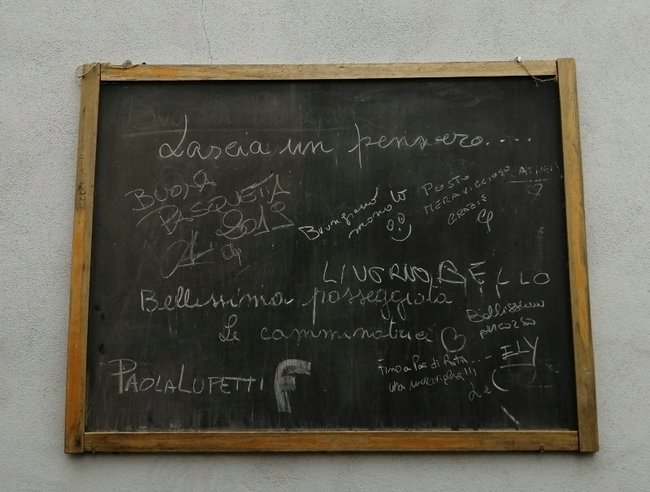 Lascia un pensiero....
BUONA
PASQUETTA
2019
Buongiorno
mondo
POSTO
MERAVIGLIOSO
GRAZIE
LIVORNO BELLO
Bellissima passeggiata
Le camminatrici
Bellissimo
percorso
PAOLA LUFETTI F
Fino a
una meraviglia!!!
ILY